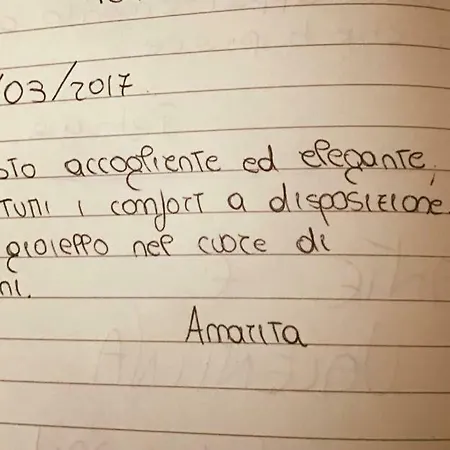 /03/2017
sto accogliente ed elegante,
tutti i comfort a disposizione.
gioiello nel cuore di
ni.
Amarita